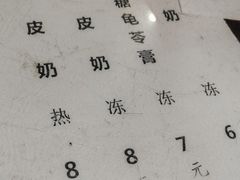 皮奶 热 8
皮奶 冻 8
糖龟苓膏 冻 7元
奶 冻 6